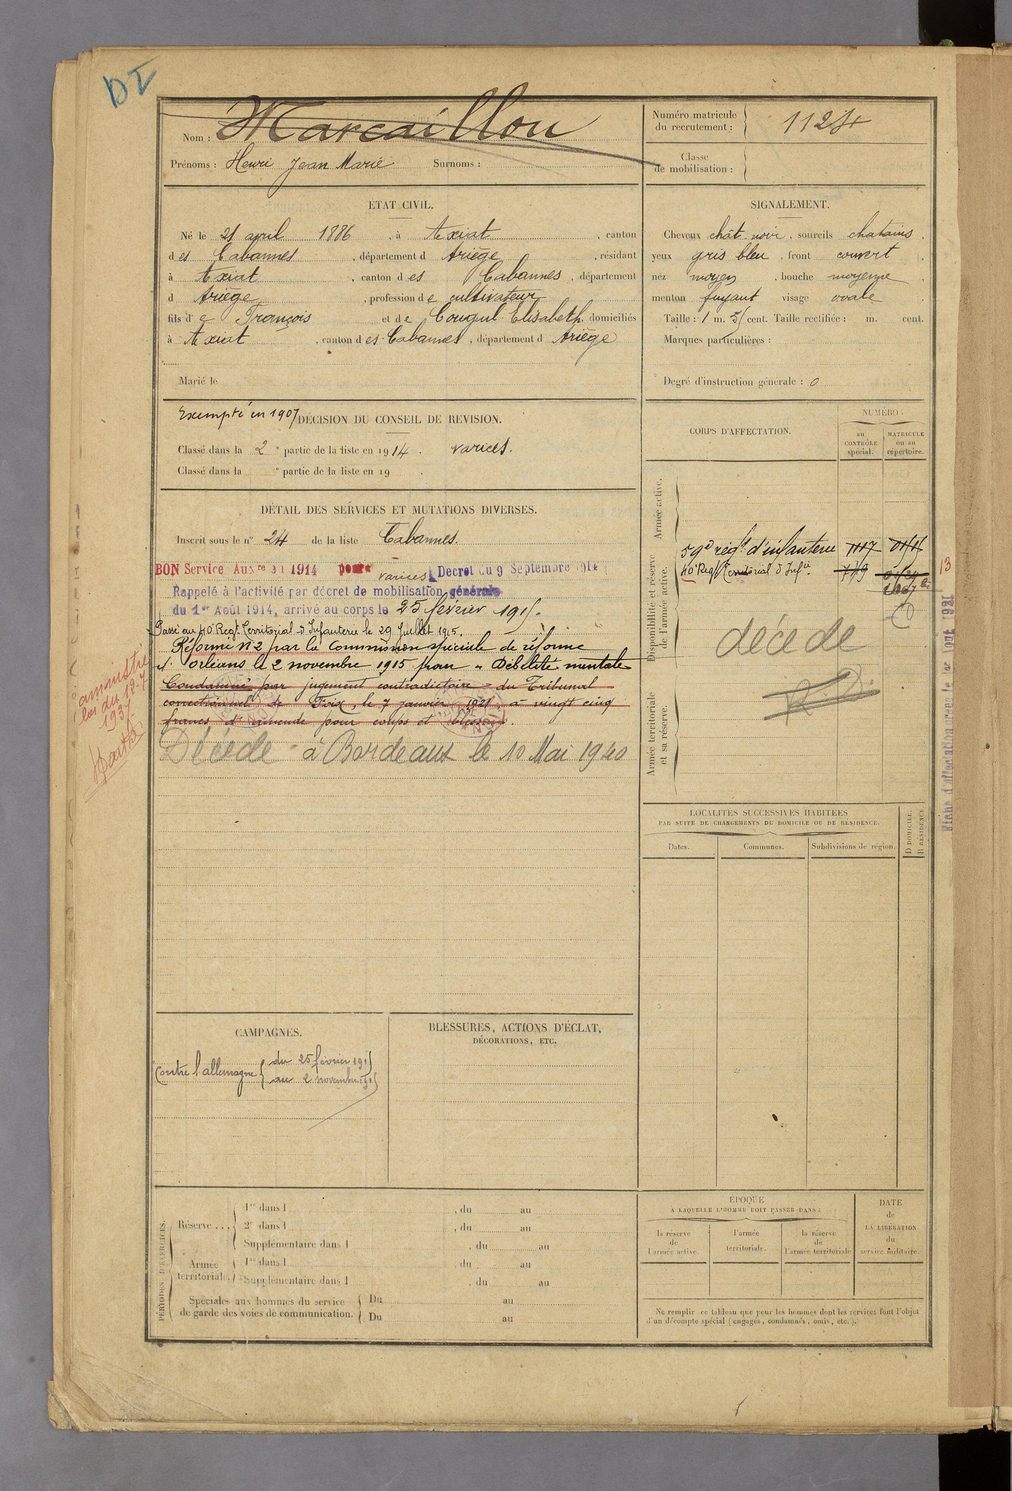 DI
Nom : Marcaillou
Prénoms : Henri Jean Marie Surnoms :
Numéro matricule
du recrutement :
Classe
de mobilisation :
ETAT CIVIL.
Né le avril 1886, à Axiat, canton
des Cabannes, département d Ariège, résidant
à Axiat, canton des Cabannes, département
d Ariège, profession de cultivateur
fils de François et de Élisabeth domiciliés
à Axiat, canton des Cabannes, département d Ariège
Marié le
SIGNALEMENT.
Cheveux chât. noir, sourcils chatains,
yeux gris bleu, front couvert,
nez moyen, bouche moyenne
menton fuyant visage ovale
Taille : 1 m. cent. Taille rectifiée : m. cent.
Marques particulières :
Degré d'instruction générale : 0
Exempté en 1907 DÉCISION DU CONSEIL DE REVISION.
Classé dans la 2e partie de la liste en 1914. varices.
Classé dans la e partie de la liste en 19 .
DÉTAIL DES SERVICES ET MUTATIONS DIVERSES.
Inscrit sous le n° 24 de la liste Cabannes.
BON Service Auxre 1914 pour varices Décret du 9 Septembre 1914
Rappelé à l'activité par décret de mobilisation générale
du 1er Août 1914, arrivé au corps le 25 février 1915.
Passé au 40e Regt Territorial d'Infanterie le 29 Juillet 1915.
Réformé n°2 par la Commission spéciale de réforme
d'Orléans le 2 novembre 1915 pour "Débilité mentale"
Condamné par jugement contradictoire du Tribunal
correctionnel de Foix, le 7 janvier 1921 à vingt cinq
francs d'amende pour coups et blessures.
Décédé à Bordeaux le 10 Mai 1940
amnistié
loi du
1937
CORPS D'AFFECTATION.
NUMÉRO :
au
CONTRÔLE
spécial.
MATRICULE
ou au
répertoire.
Armée active.
Disponibilité et réserve
de l'armée active.
Armée territoriale
et sa réserve.
59e régt d'infanterie
40e Regt Territorial d'Infie
décédé
13
LOCALITÉS SUCCESSIVES HABITÉES
PAR SUITE DE CHANGEMENTS DE DOMICILE OU DE RÉSIDENCE.
Dates.
Communes.
Subdivisions de région.
D DOMICILE.
R RÉSIDENCE.
CAMPAGNES.
Contre l'allemagne { du 25 février 1915
au 2 novembre 1915
BLESSURES, ACTIONS D'ÉCLAT,
DÉCORATIONS, ETC.
PÉRIODES D'EXERCICES.
Réserve . . .
1re dans l , du au
2e dans l , du au
Supplémentaire dans l , du au
Armée
territoriale.
1re dans l , du au
Supplémentaire dans l , du au
Spéciales aux hommes du service
de garde des voies de communication.
Du au
Du au
ÉPOQUE
A LAQUELLE L'HOMME DOIT PASSER DANS :
la réserve
de
l'armée active.
l'armée
territoriale.
la réserve
de
l'armée territoriale.
DATE
de
LA LIBÉRATION
du
service militaire.
Ne remplir ce tableau que pour les hommes dont les services font l'objet
d'un décompte spécial (engagés, condamnés, omis, etc.).